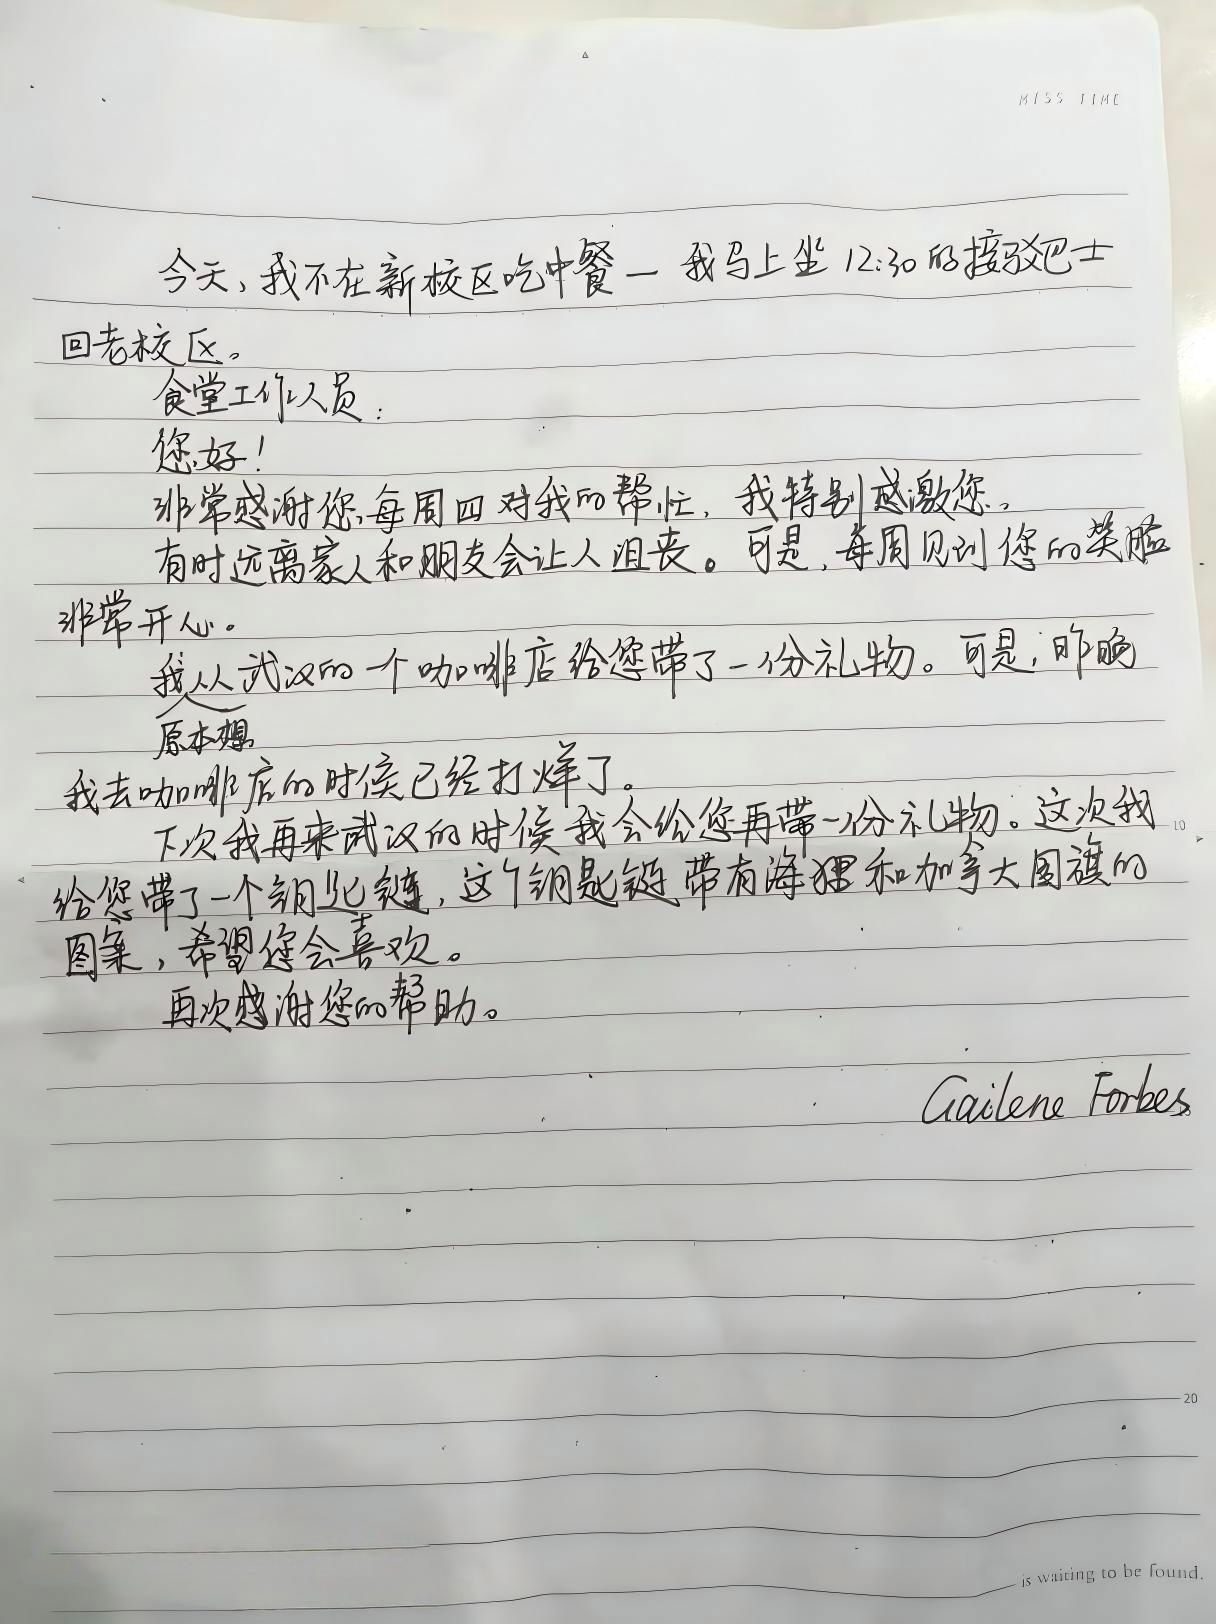 MISS TIME
今天，我不在新校区吃中餐 — 我马上坐 12:30 的接驳巴士
回老校区。
食堂工作人员：
您好！
非常感谢您每周四对我的帮忙，我特别感激您。
有时远离家人和朋友会让人沮丧。可是，每周见到您的笑脸
非常开心。
我从武汉的一个咖啡店给您带了一份礼物。可是，昨晚
原本想
我去咖啡店的时候已经打烊了。
下次我再来武汉的时候我会给您再带一份礼物。这次我
10
给您带了一个钥匙链，这个钥匙链带有海狸和加拿大国旗的
图案，希望您会喜欢。
再次感谢您的帮助。
Gailene Forbes
20
is waiting to be found.